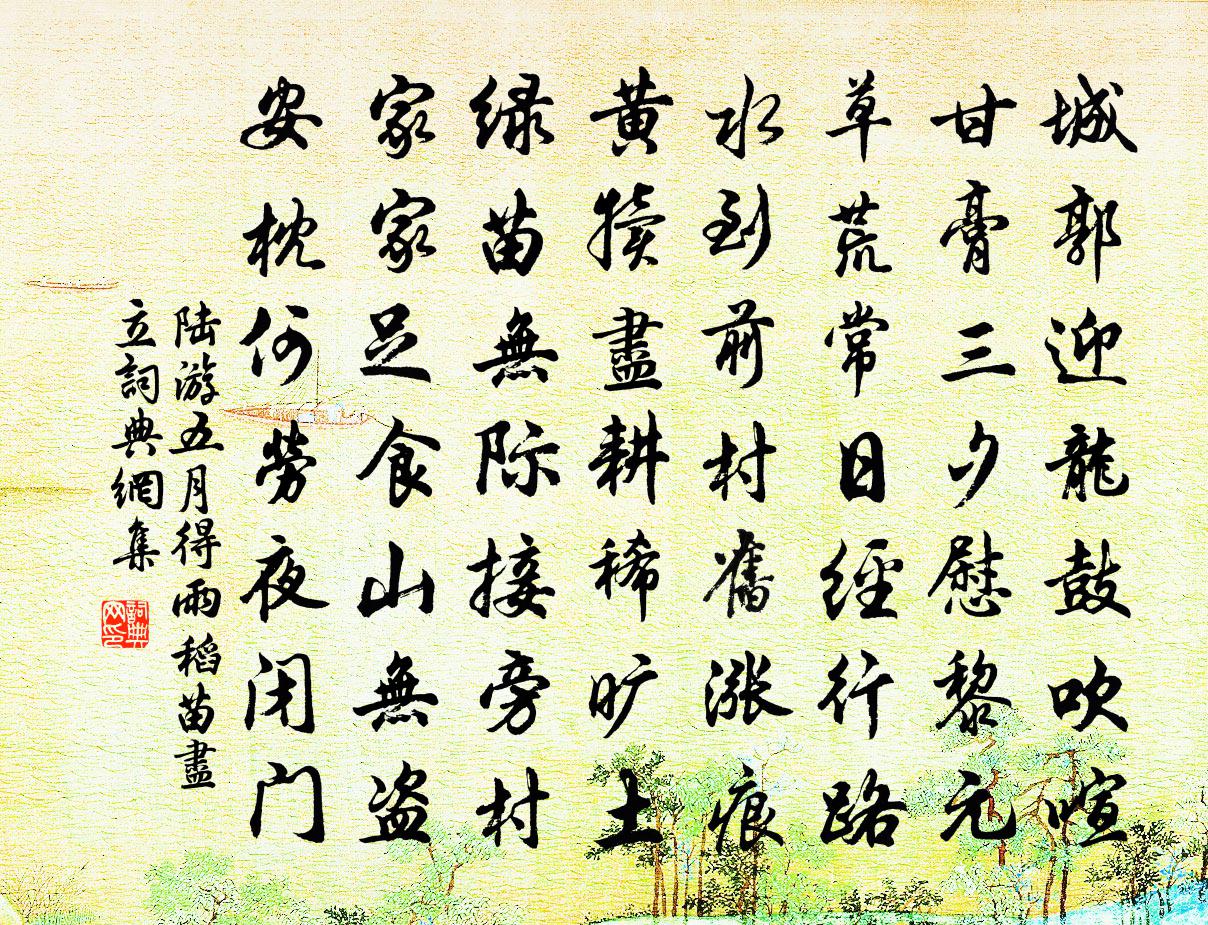 城郭迎龍鼓吹喧
甘膏三夕慰黎元
草荒常日經行路
水到前村舊漲痕
黄犢盡耕稀旷土
緑苗無际接旁村
家家足食山無盗
安枕何勞夜闭门
陆游五月得雨稻苗盡
立詞典網集
詞典网印